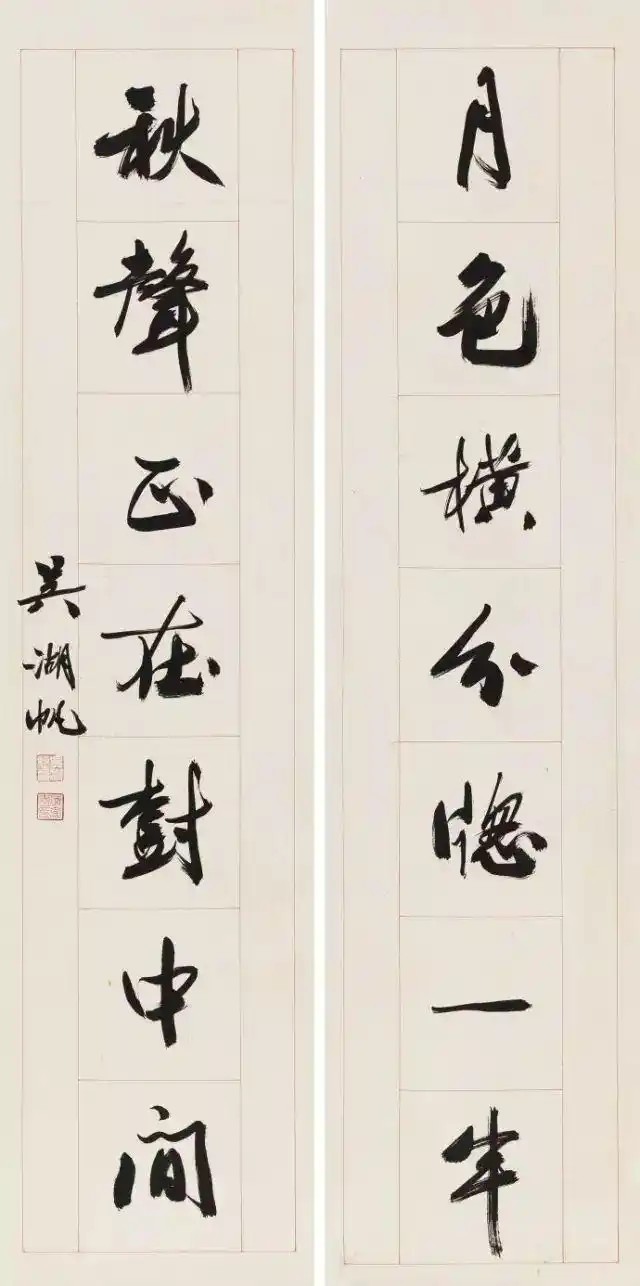 月色橫分牕一半
秋聲正在樹中間
吳湖帆